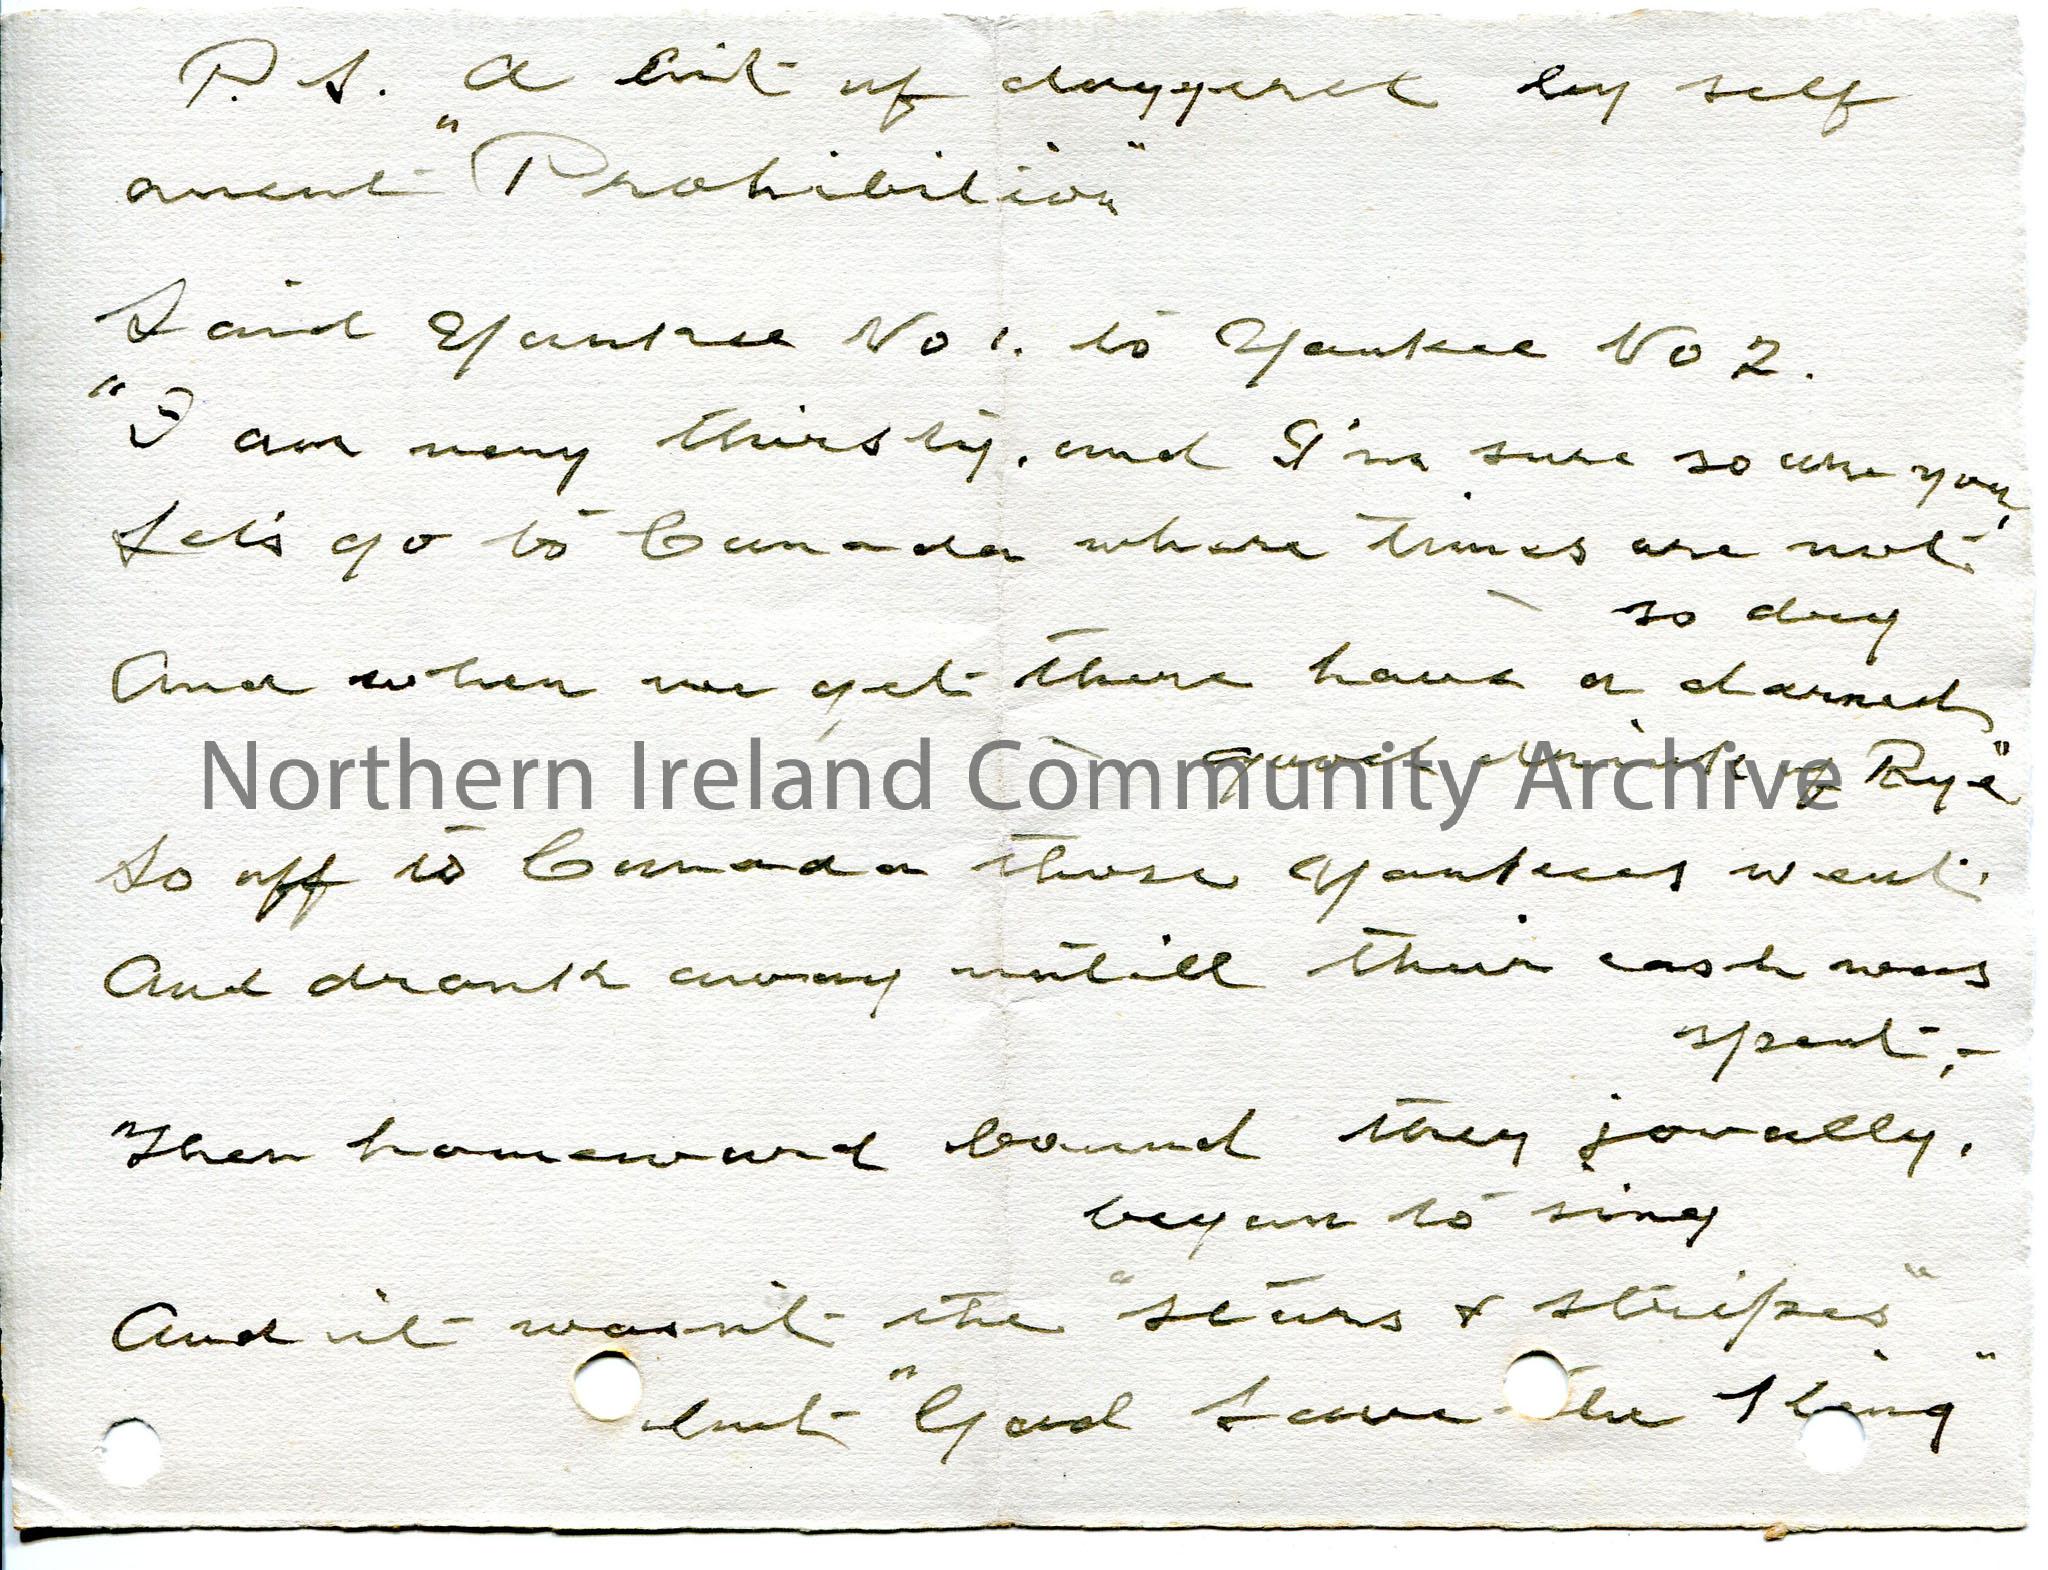 P.S. A bit of doggerel by self
anent "Prohibition"
Said Yankee No 1. to Yankee No 2.
"I am very thirsty, and I'm sure so are you,
Let's go to Canada where times are not
so dry
And when we get there have a darned
good drink of Rye"
Northern Ireland Community Archive
So off to Canada those Yankees went,
And drank away untill their cash was
spent, -
Then homeward bound they jovally,
began to sing
And it wasn't the "stars & stripes"
but "God Save the King"